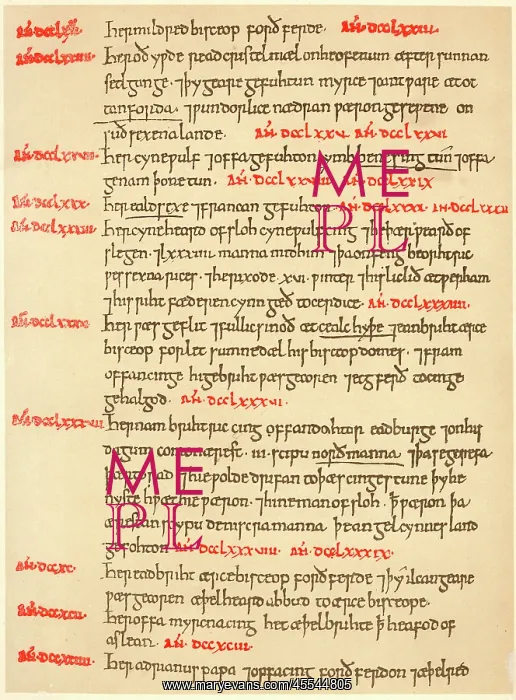 AN·dcclxxii· Her mildred bisceop forð ferde· AN·dcclxxiii·
AN·dcclxxiiii· Her oðyƿde read cristes mæl on heofenum æfter sunnan
setlgange· ⁊ þy geare gefuhtun myrce ⁊ cantƿare æt ot
tanforda· ⁊ ƿundorlice nædran ƿæron geseƿene on
suð sexena lande· AN·dcclxxv· AN·dcclxxvi
AN·dcclxxvii· Her cyneƿulf ⁊ offa gefuhton ymb benesing tun ⁊ offa
genam þone tun· AN·dcclxxviii AN·dcclxxix
AN·dcclxxx· Her ealdsexe ⁊ francan gefuhton AN·dcclxxxi· AN·dcclxxxii
AN·dcclxxxiii· Her cyneheard ofsloh cyneƿulf cing ⁊ he þær ƿearð of
slegen· ⁊ lxxxiiii manna mid him ⁊ þa onfeng beorhtric
ƿessexna rices· ⁊ he rixode ·xvi· ƿinter ⁊ his lic lið æt ƿerham
⁊ his riht fæderencynn gæð to cerdice· AN·dcclxxxiiii·
AN·dcclxxxv· Her ƿæs geflitfullic sinoð æt cealc hyþe ⁊ eanbriht ærce
bisceop forlet sumne dæl his bisceopdomes· ⁊ fram
offan cinge higebriht ƿæs gecoren ⁊ ecgferð to cinge
gehalgod· AN·dcclxxxvi·
AN·dcclxxxvii· Her nam brihtric cing offan dohtor eadburge ⁊ on his
dagum comon ærest ·iii· scipu norðmanna ⁊ þa se gerefa
⁊ hie ƿolde drifan to þæs cinges tune þy he
nyste hƿæt hie ƿæron· ⁊ hine man ofsloh· þæt ƿæron þa
ærestan scypu deniscra manna þe angelcynnes land
gesohton AN·dcclxxxviii· AN·dcclxxxix·
AN·dccxc· Her eadbriht ærcebisceop forð ferde ⁊ þy ilcan geare
ƿæs gecoren æþelheard abbud to ærcebisceope·
AN·dccxcii· Her offa myrcna cing het æþelbrihte þæt heafod of
aslean· AN·dccxciii·
AN·dccxciiii· Her adrianus papa ⁊ offa cing forð ferdon ⁊ æþelred
ME
PL
ME
PL
www.maryevans.com/45544805